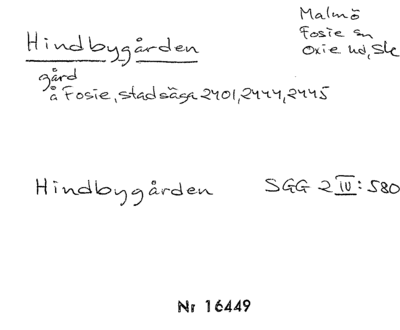 Hindbygården
Malmö
Fosie sn
Oxie hd, Sk
gård
å Fosie, stadsäga 2401, 2444, 2445
Hindbygården SGG 2 IV: 580
Nr 16449